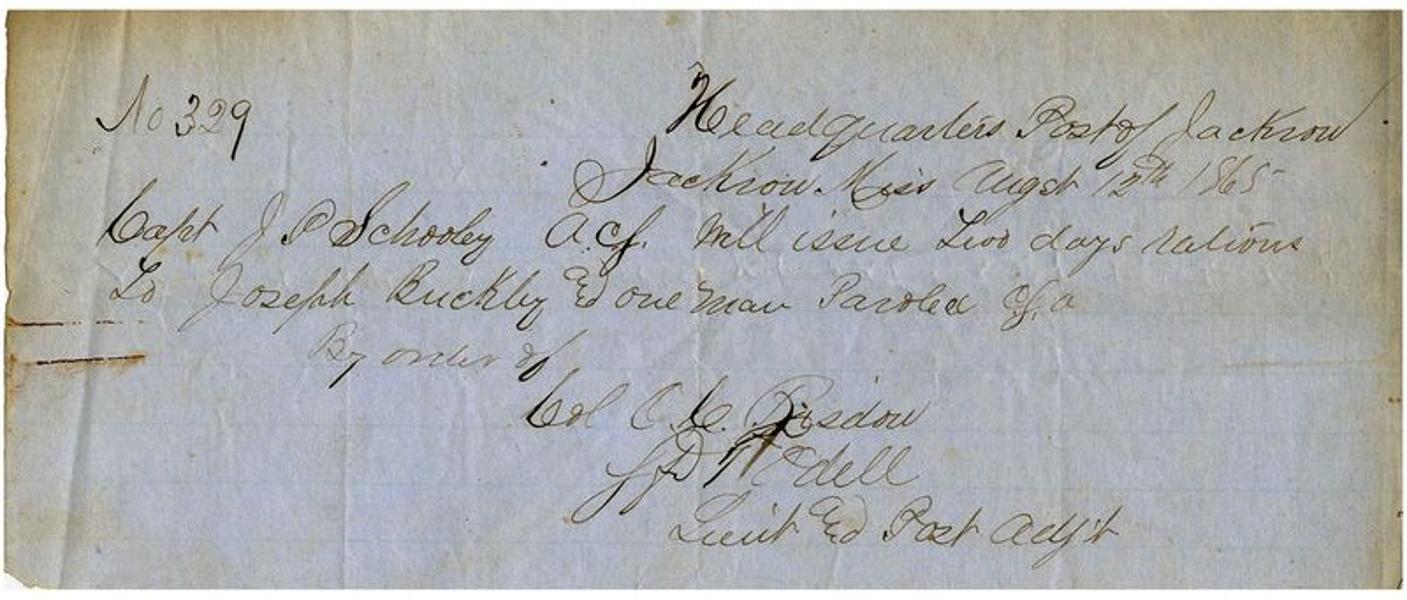 No 329
Headquarters Post of Jackson
Jackson Miss Augst 12th 1865
Capt J. P Schooley A.C.S. Will issue Two days rations
To Joseph Buckley & one man Paroled C.S.A
By order of
Col O. C. Risdon
Edell
Lieut & Post Adjt